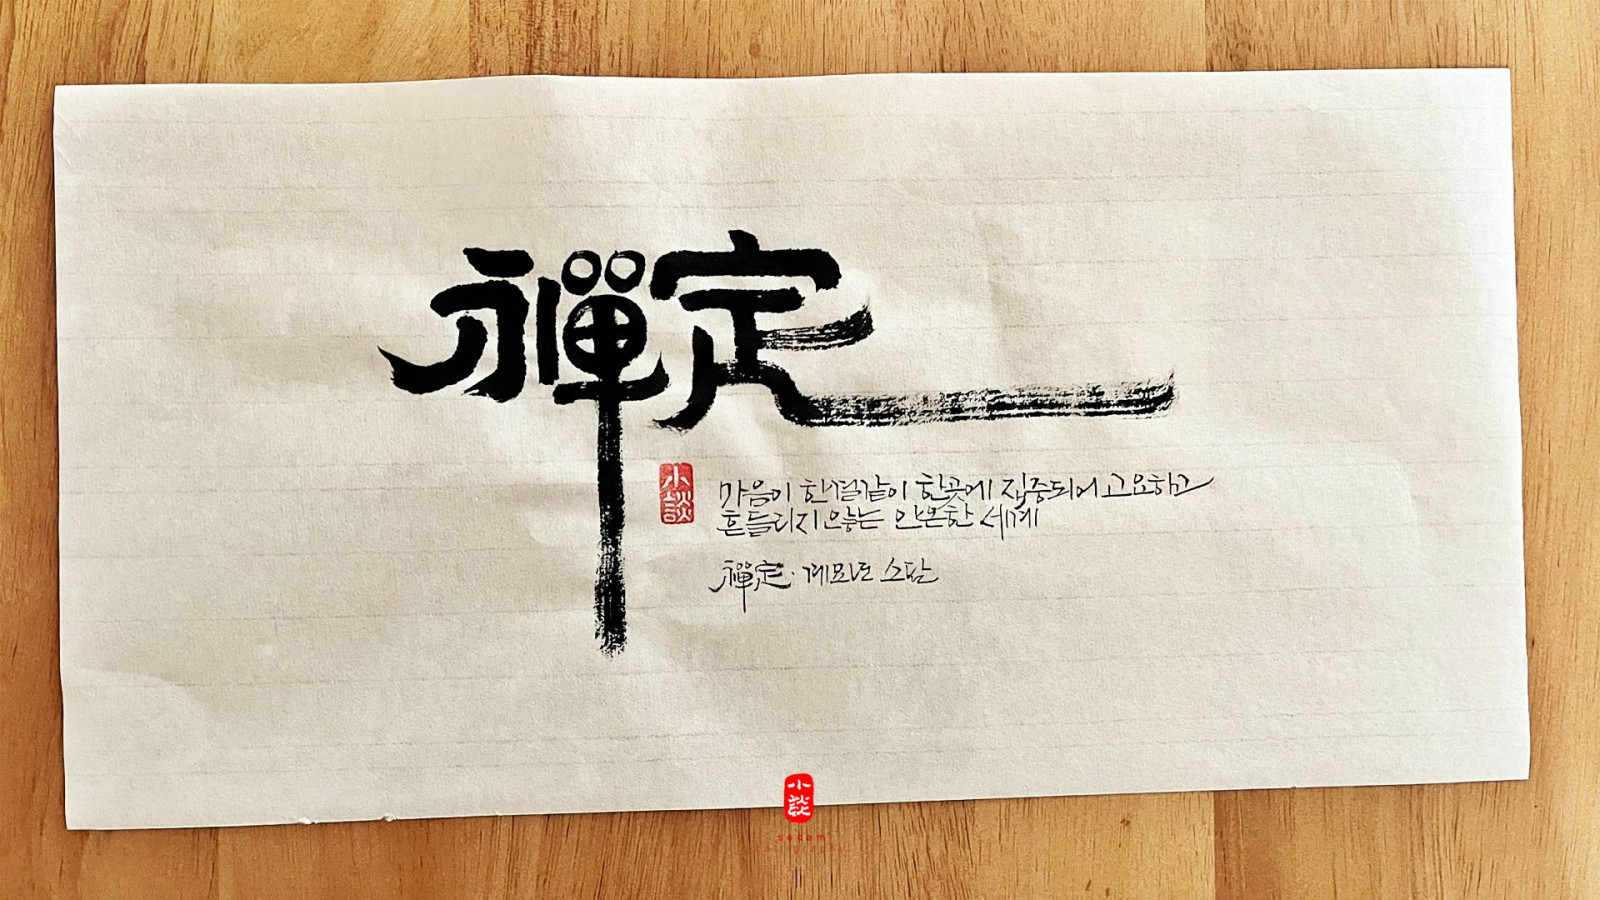 禪定
小談
마음이 한결같이 한곳에 집중되어 고요하고
흔들리지 않는 안온한 세계
禪定. 계묘년 소담
小談
sodam